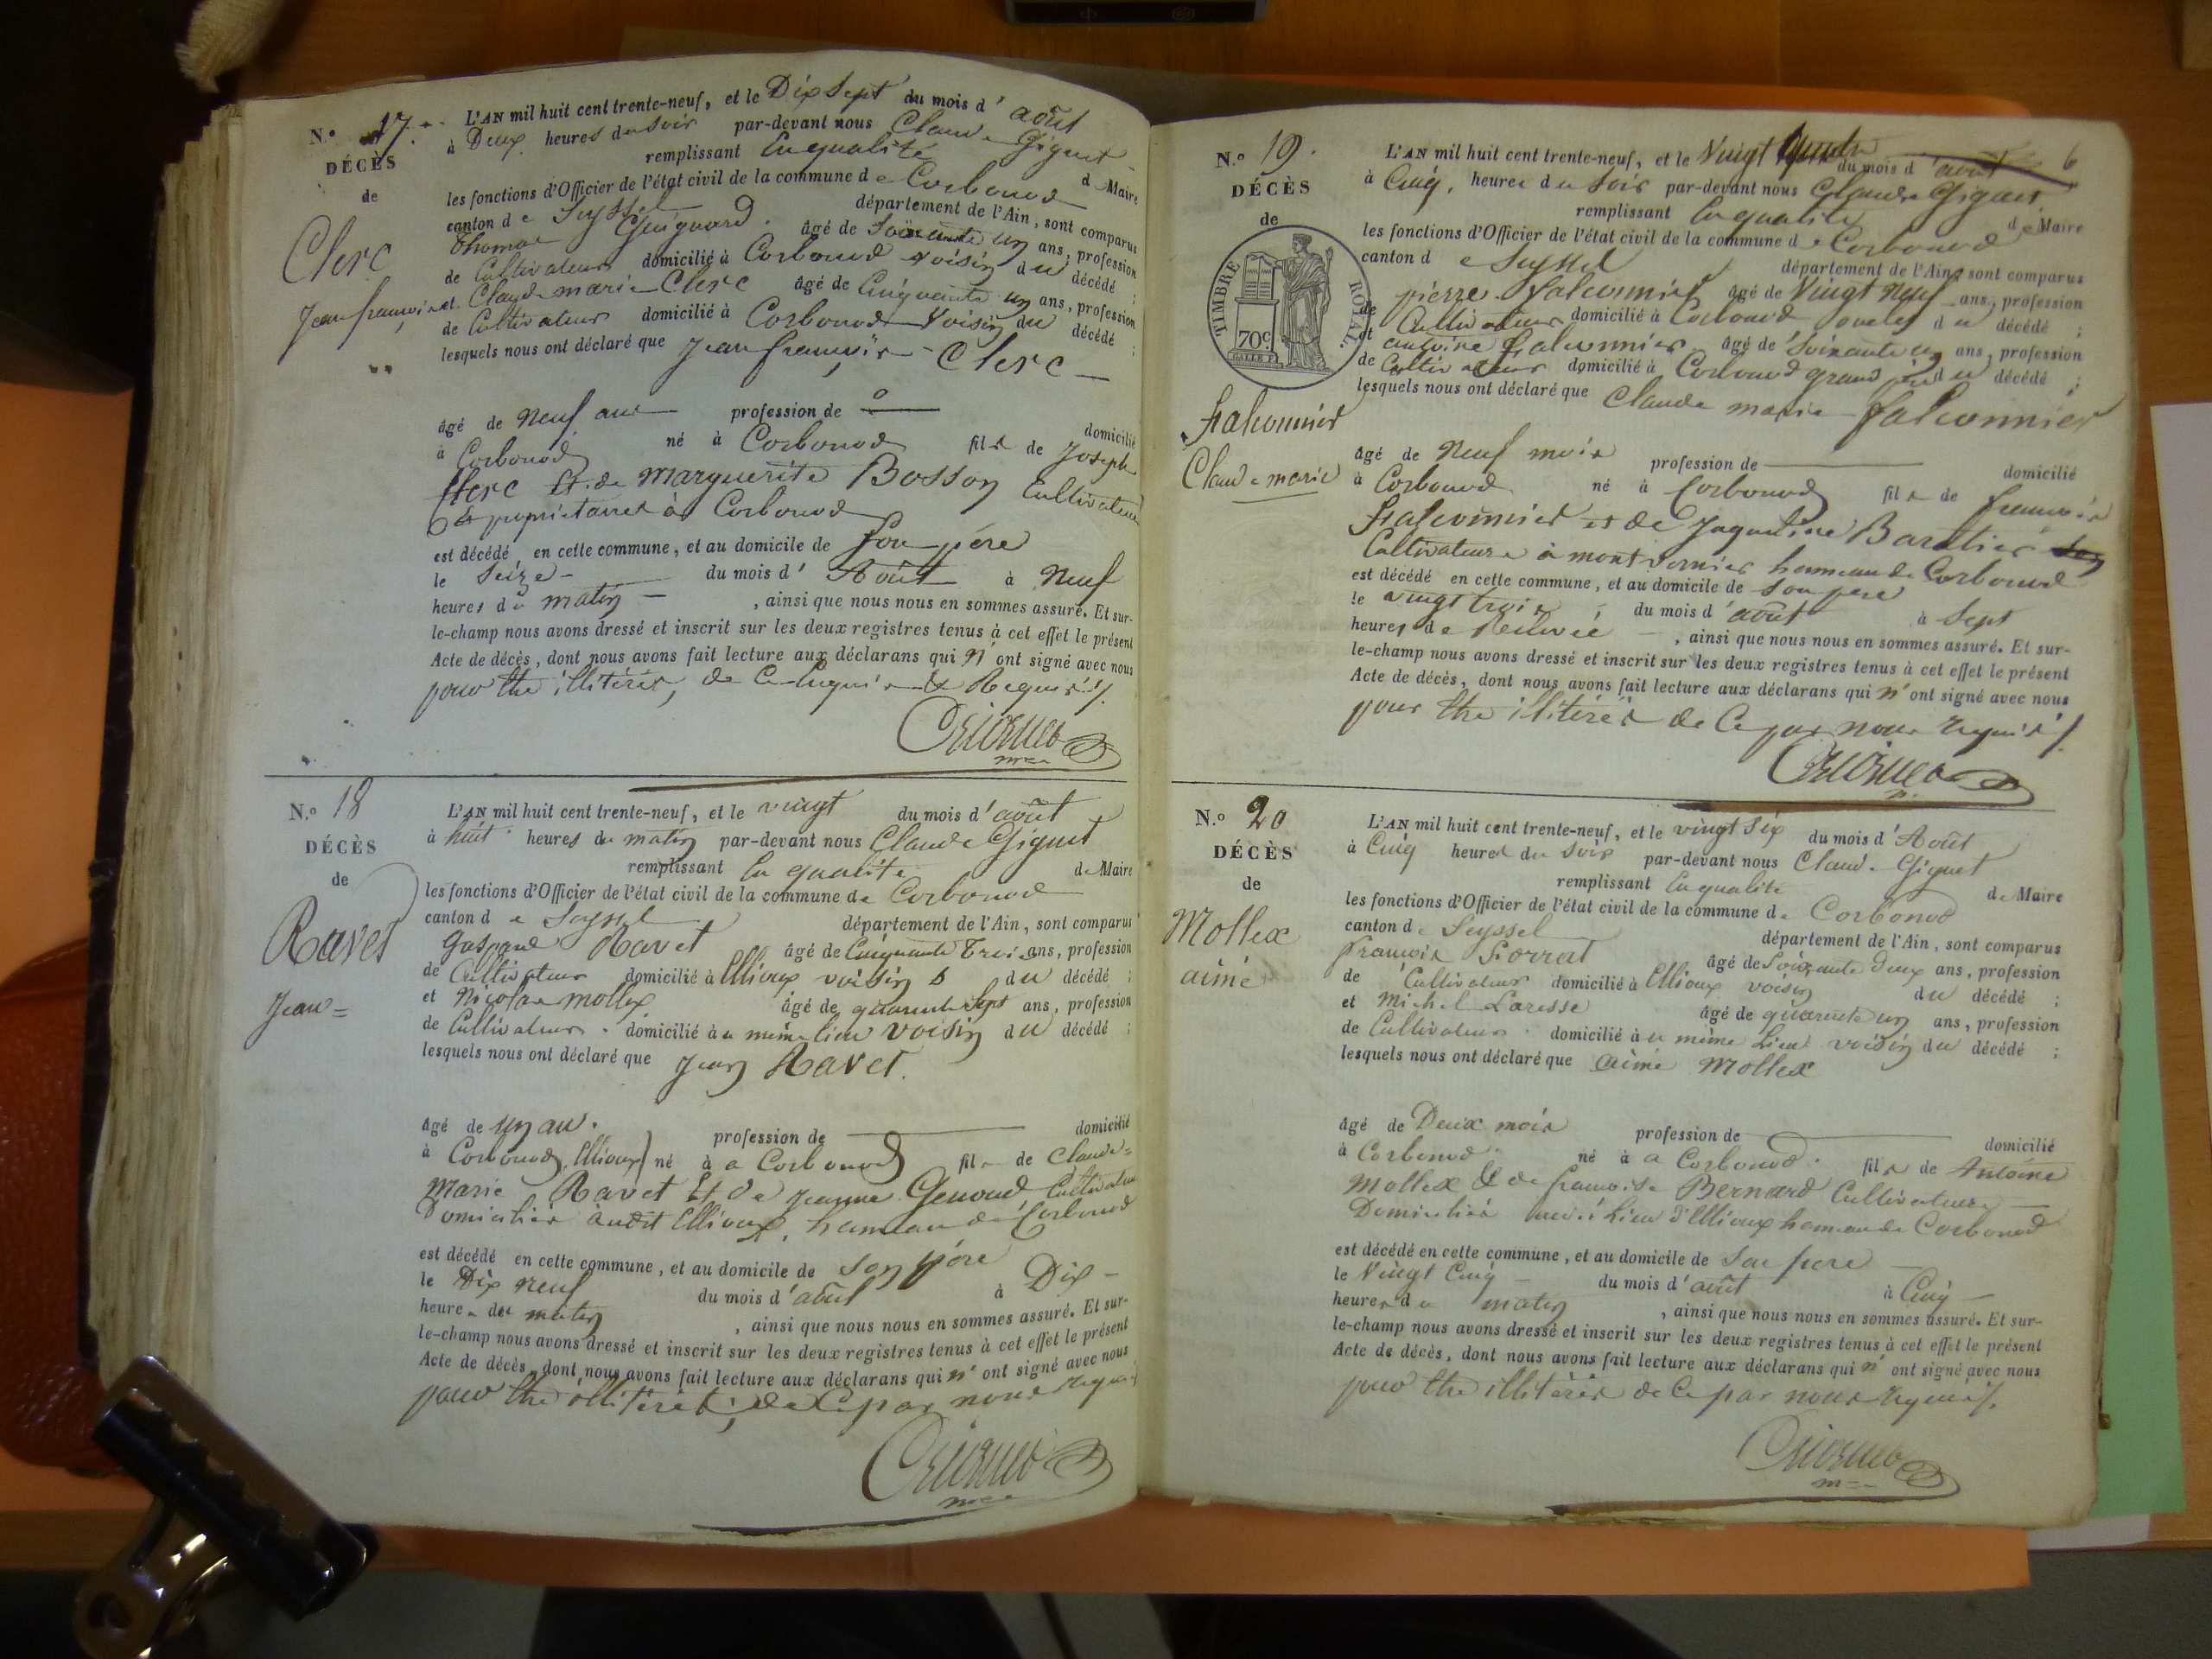 N.º 17.
DÉCÈS
de
Clerc
Jean françois
L'AN mil huit cent trente-neuf, et le Dix Sept du mois d'août
à Deux heures du soir par-devant nous Claude Giguet
remplissant En qualité de Maire
les fonctions d'Officier de l'état civil de la commune de Corbonod
canton de Seyssel département de l'Ain, sont comparus
Thomas Guignard âgé de Soixante un ans, profession
de Cultivateur domicilié à Corbonod voisin du décédé ;
et Claude marie Clerc âgé de Cinquante un ans, profession
de Cultivateur domicilié à Corbonod Voisin du décédé ;
lesquels nous ont déclaré que Jean françois Clerc
âgé de Neuf ans profession de
domicilié
à Corbonod né à Corbonod fils de Joseph
Clerc Et de Marguerite Bosson Cultivateurs
& propriétaires à Corbonod
est décédé en cette commune, et au domicile de Son père
le Seize du mois d'Août à Neuf
heures du matin , ainsi que nous nous en sommes assuré. Et sur-
le-champ nous avons dressé et inscrit sur les deux registres tenus à cet effet le présent
Acte de décès, dont nous avons fait lecture aux déclarans qui n'ont signé avec nous
pour être illitérés, de Ce Requis
N.º 18
DÉCÈS
de
Ravet
Jean =
L'AN mil huit cent trente-neuf, et le vingt du mois d'août
à huit heures du matin par-devant nous Claude Giguet
remplissant En qualité de Maire
les fonctions d'Officier de l'état civil de la commune de Corbonod
canton de Seyssel département de l'Ain, sont comparus
Gaspard Ravet âgé de Cinquante Trois ans, profession
de Cultivateur domicilié à Ellioux voisin du décédé ;
et Nicolas mollex âgé de quarente Sept ans, profession
de Cultivateur domicilié à u même lieu voisin du décédé ;
lesquels nous ont déclaré que Jean Ravet.
âgé de un an. profession de domicilié
à Corbonod, Ellioux né à a Corbonod fils de Claude=
Marie Ravet Et de Jeanne Genoud Cultivateurs
Domiciliés audit Ellioux, hameau de Corbonod
est décédé en cette commune, et au domicile de Son père
le Dix neuf du mois d'août à Dix
heures du matin , ainsi que nous nous en sommes assuré. Et sur-
le-champ nous avons dressé et inscrit sur les deux registres tenus à cet effet le présent
Acte de décès, dont nous avons fait lecture aux déclarans qui n'ont signé avec nous
pour être illitérés, de Ce par nous requis
6
N.º 19.
DÉCÈS
de
TIMBRE ROYAL.
70c.
Falconnier
Claude marie
L'AN mil huit cent trente-neuf, et le Vingt quatre du mois d'août
à Cinq, heures du Soir par-devant nous Claude Giguet
remplissant En qualité de Maire
les fonctions d'Officier de l'état civil de la commune de Corbonod
canton de Seyssel département de l'Ain, sont comparus
pierre falconnier âgé de Vingt Neuf ans, profession
de Cultivateur domicilié à Corbonod oncle du décédé ;
et antoine falconnier âgé de Soixante un ans, profession
de Cultivateur domicilié à Corbonod grand père du décédé ;
lesquels nous ont déclaré que Claude marie falconnier
âgé de Neuf mois profession de domicilié
à Corbonod né à Corbonod fils de françois
falconnier et de Jaqueline Baratier
Cultivateurs à mont hameau de Corbonod
est décédé en cette commune, et au domicile de Son père
le vingt trois du mois d'août à Sept
heures de Relevée , ainsi que nous nous en sommes assuré. Et sur-
le-champ nous avons dressé et inscrit sur les deux registres tenus à cet effet le présent
Acte de décès, dont nous avons fait lecture aux déclarans qui n'ont signé avec nous
pour être illitérés de Ce par nous requis
N.º 20
DÉCÈS
de
Mollex
aimé
L'AN mil huit cent trente-neuf, et le vingt Six du mois d'Août
à Cinq heures du Soir par-devant nous Claude Giguet
remplissant En qualité de Maire
les fonctions d'Officier de l'état civil de la commune de Corbonod
canton de Seyssel département de l'Ain, sont comparus
françois Sorrat âgé de Soixante Deux ans, profession
de Cultivateur domicilié à Ellioux voisin du décédé ;
et Michel Laresse âgé de quarente un ans, profession
de Cultivateur domicilié à u même Lieu voisin du décédé ;
lesquels nous ont déclaré que aimé Mollex
âgé de Deux mois profession de domicilié
à Corbonod né à a Corbonod fils de Antoine
Mollex & de françoise Bernard Cultivateurs
Domiciliés Lieu d'Ellioux hameau de Corbonod
est décédé en cette commune, et au domicile de Son père
le Vingt Cinq du mois d'août à Cinq
heures du matin , ainsi que nous nous en sommes assuré. Et sur-
le-champ nous avons dressé et inscrit sur les deux registres tenus à cet effet le présent
Acte de décès, dont nous avons fait lecture aux déclarans qui n'ont signé avec nous
pour être illitérés de Ce par nous requis